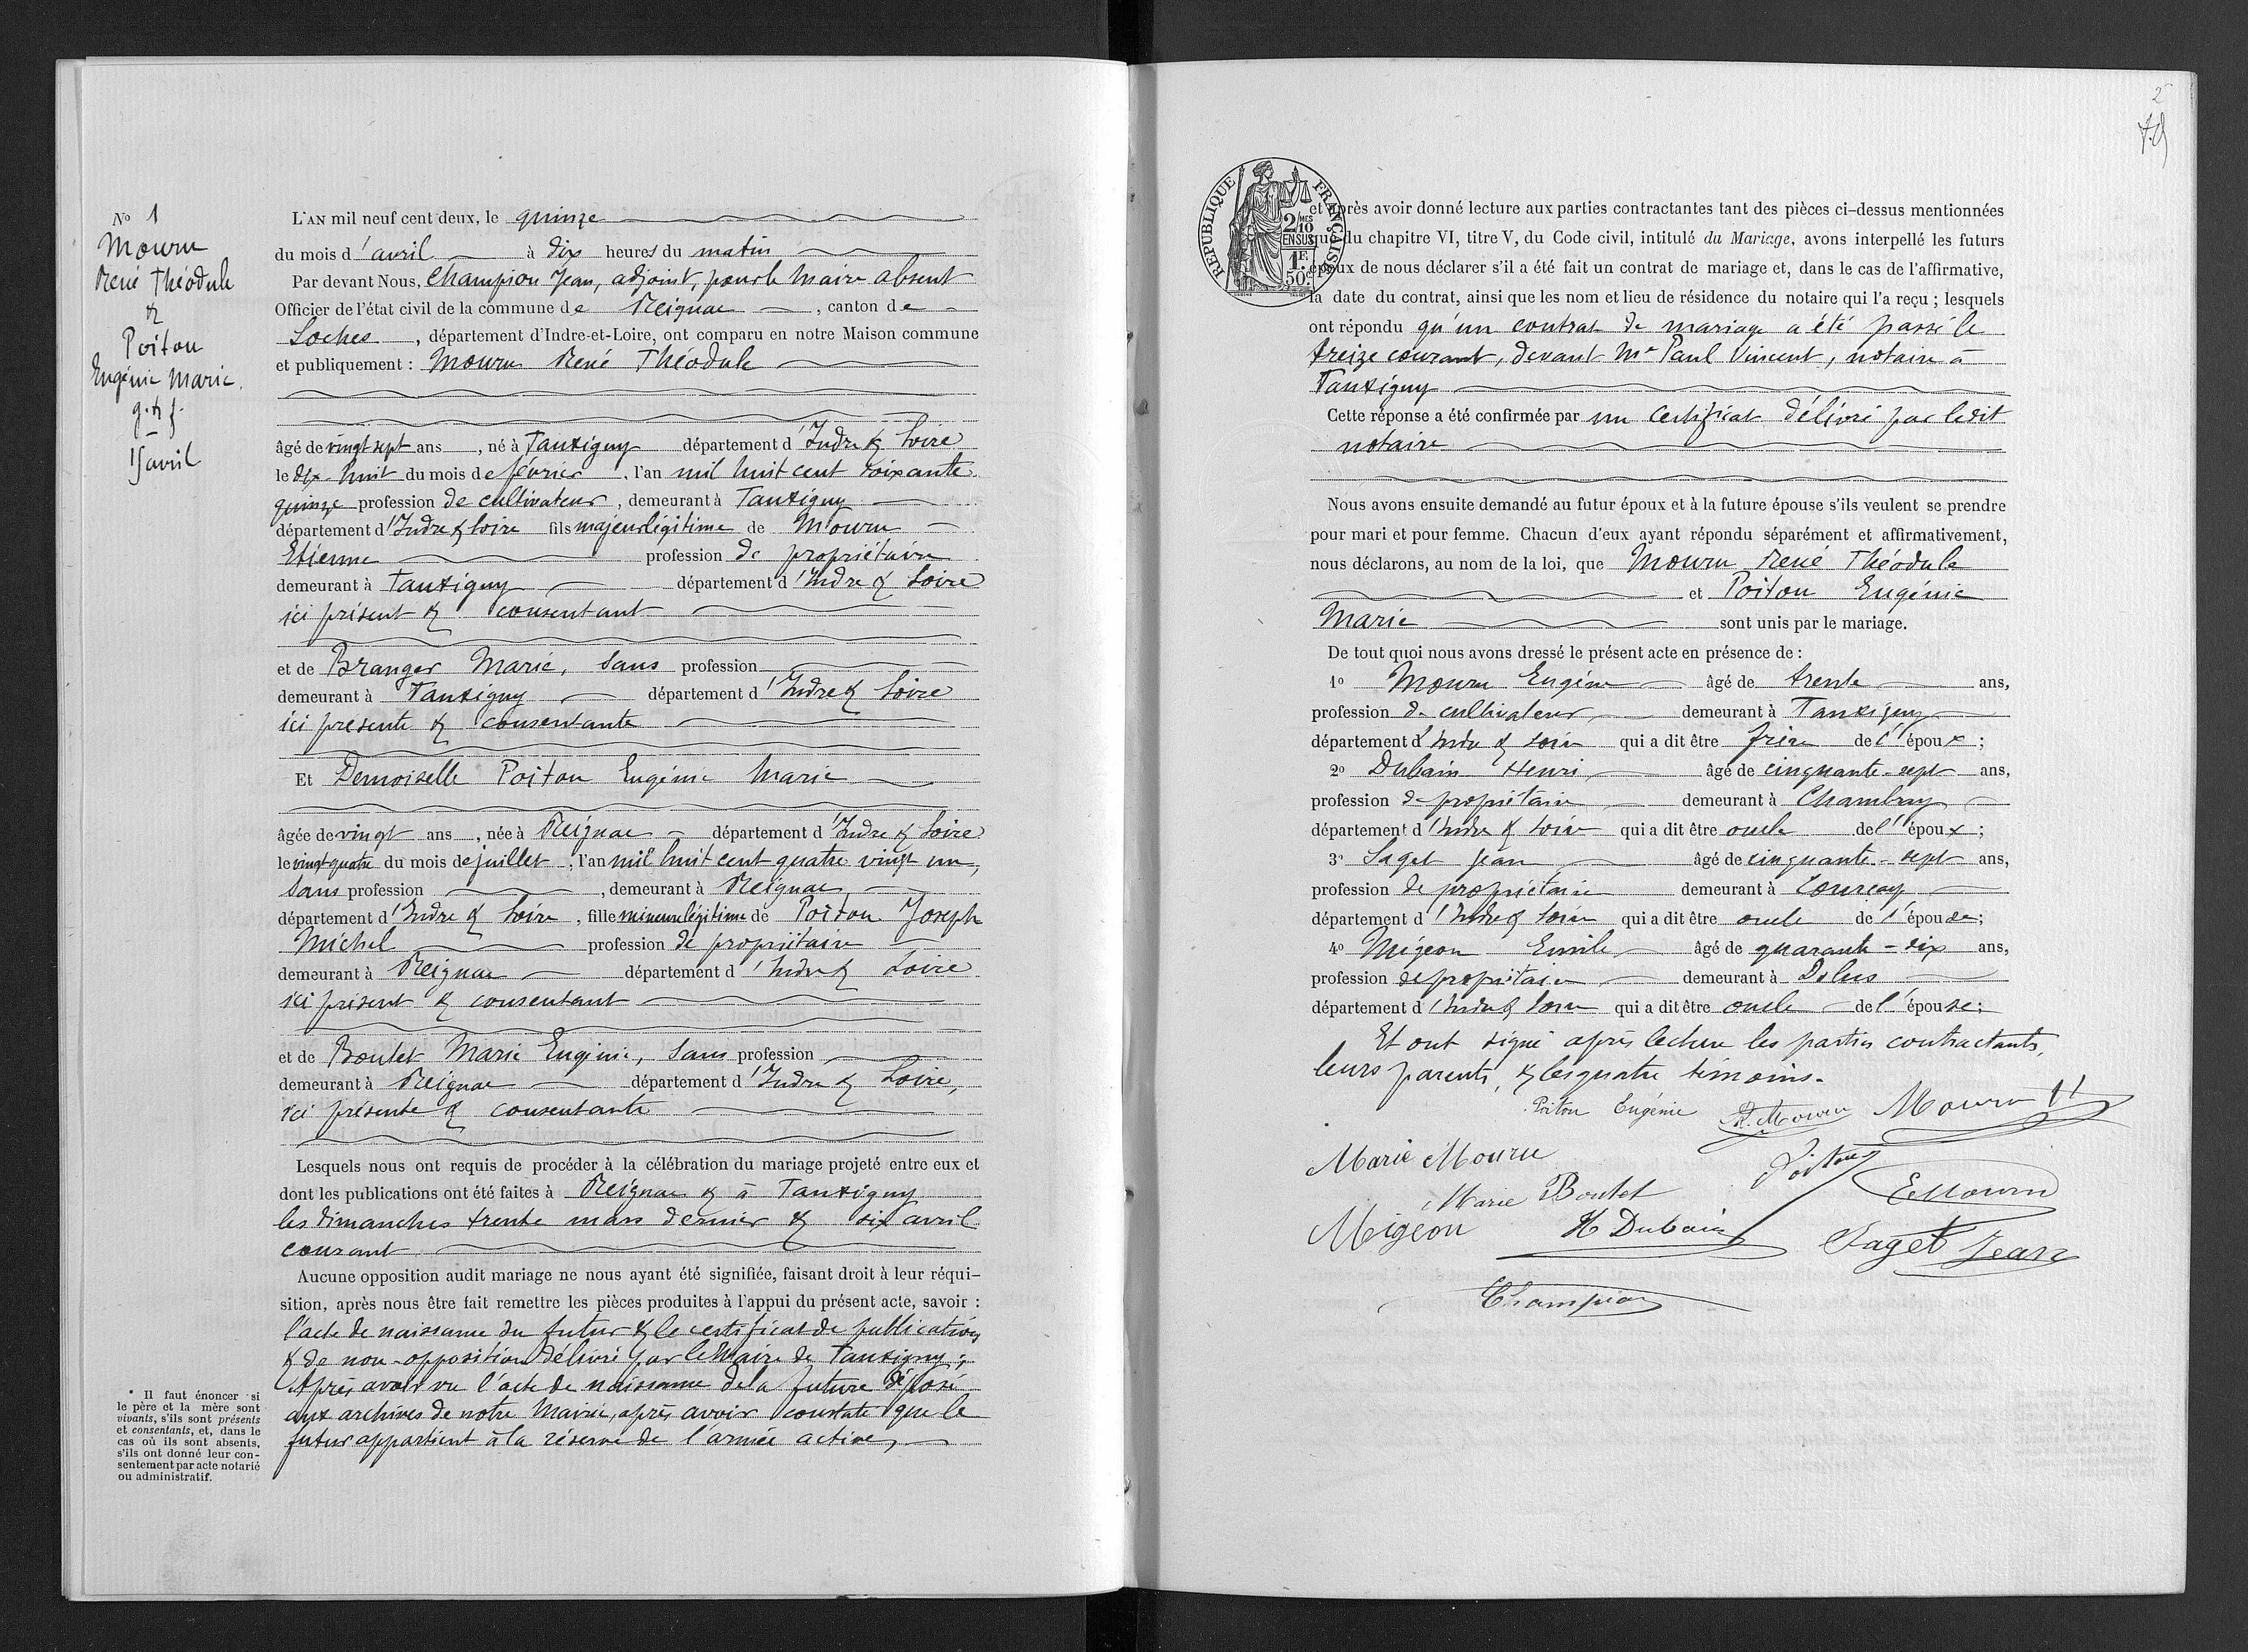 No 1
Mourru
René Théodule
&
Poitou
Eugénie Marie.
g. & f.
15 avril
L'AN mil neuf cent deux, le quinze
du mois d'avril à dix heures du matin
Par devant Nous, Champion Jean, adjoint, pour le Maire absent
Officier de l'état civil de la commune de Reignac, canton de
Loches, département d'Indre-et-Loire, ont comparu en notre Maison commune
et publiquement : Mourru René Théodule
âgé de vingt sept ans, né à Tauxigny département d'Indre & Loire
le dix-huit du mois de février, l'an mil huit cent soixante
quinze profession de cultivateur, demeurant à Tauxigny
département d'Indre & Loire fils majeur légitime de Mourru
Etienne profession de propriétaire
demeurant à Tauxigny département d'Indre & Loire
ici présent & consentant
et de Branger Marie, sans profession
demeurant à Tauxigny département d'Indre & Loire
ici présente & consentante
Et Demoiselle Poitou Eugénie Marie
âgée de vingt ans, née à Reignac département d'Indre & Loire
le vingt quatre du mois de juillet, l'an mil huit cent quatre vingt un,
sans profession, demeurant à Reignac
département d'Indre & Loire, fille mineure légitime de Poitou Joseph
Michel profession de propriétaire
demeurant à Reignac département d'Indre & Loire
ici présent & consentant
et de Boutet Marie Eugénie, sans profession
demeurant à Reignac département d'Indre & Loire,
ici présente & consentante
Lesquels nous ont requis de procéder à la célébration du mariage projeté entre eux et
dont les publications ont été faites à Reignac & à Tauxigny
les dimanches trente mars dernier & six avril
courant
Aucune opposition audit mariage ne nous ayant été signifiée, faisant droit à leur réqui-
sition, après nous être fait remettre les pièces produites à l'appui du présent acte, savoir :
l'acte de naissance du futur & le certificat de publications
& de non-opposition délivré par le Maire de Tauxigny ;
Après avoir vu l'acte de naissance de la future déposé
aux archives de notre Mairie, après avoir constaté que le
futur appartient à la réserve de l'armée active,
* Il faut énoncer si
le père et la mère sont
vivants, s'ils sont présents
et consentants, et, dans le
cas où ils sont absents,
s'ils ont donné leur con-
sentement par acte notarié
ou administratif.
2
RÉPUBLIQUE FRANÇAISE
2/10
MES
EN SUS
1F.
50c.
et après avoir donné lecture aux parties contractantes tant des pièces ci-dessus mentionnées
que du chapitre VI, titre V, du Code civil, intitulé du Mariage, avons interpellé les futurs
époux de nous déclarer s'il a été fait un contrat de mariage et, dans le cas de l'affirmative,
la date du contrat, ainsi que les nom et lieu de résidence du notaire qui l'a reçu ; lesquels
ont répondu qu'un contrat de mariage a été passé le
treize courant, devant Me Paul Vincent, notaire à
Tauxigny
Cette réponse a été confirmée par un certificat délivré par ledit
notaire
Nous avons ensuite demandé au futur époux et à la future épouse s'ils veulent se prendre
pour mari et pour femme. Chacun d'eux ayant répondu séparément et affirmativement,
nous déclarons, au nom de la loi, que Mourru René Théodule
et Poitou Eugénie
Marie sont unis par le mariage.
De tout quoi nous avons dressé le présent acte en présence de :
1o Mourru Eugène âgé de trente ans,
profession de cultivateur demeurant à Tauxigny
département d'Indre & Loire qui a dit être frère de l'époux ;
2o Dubain Henri âgé de cinquante-sept ans,
profession de propriétaire demeurant à Chambray
département d'Indre & Loire qui a dit être oncle de l'époux ;
3o Saget Jean âgé de cinquante-sept ans,
profession de propriétaire demeurant à Courçay
département d'Indre & Loire qui a dit être oncle de l'épouse ;
4o Migeon Emile âgé de quarante-six ans,
profession de propriétaire demeurant à Dolus
département d'Indre & Loire qui a dit être oncle de l'épouse ;
Et ont signé après lecture les parties contractants,
leurs parents, & les quatre témoins.
Poitou Eugénie R. Mourru Mourru
Marie Mourru Poitou
Marie Boutet E Mourru
Migeon H Dubain Saget Jean
Champion